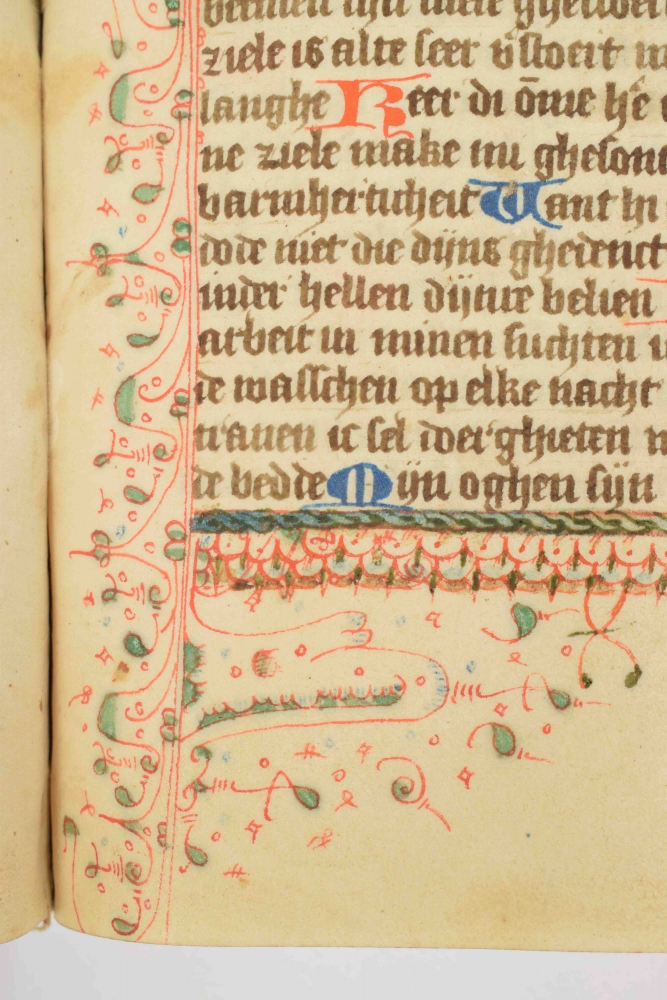 ziele is alte seer vstoert
langhe Keer di ōme he
ne ziele make mi ghesont
barmherticheit Want in
dode niet die dijns ghedenct
inder hellen dijnre belien
arbeit in minen suchten
ic wasschen op elke nacht
tranen ic sel doerghieten
de bedde Mijn oghen sijn